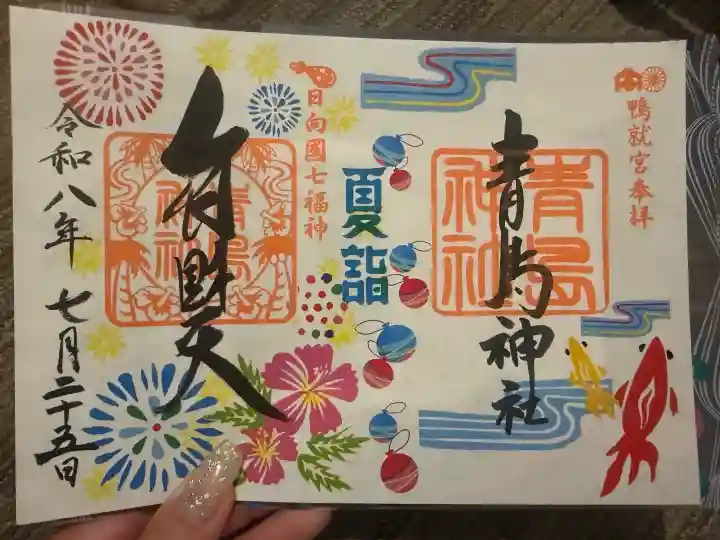 鴨就宮奉拝
青島神社
青島
神社
夏詣
日向國七福神
弁財天
青島
神社
令和八年 七月二十五日